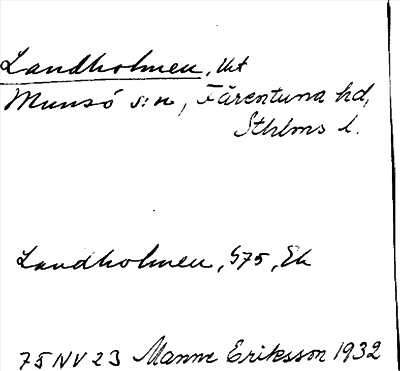 Landholmen, Ut
Munsö s:n, Färentuna hd,
Sthlms l.
Landholmen, G75, Ek
75 NV 23 Manne Eriksson 1932